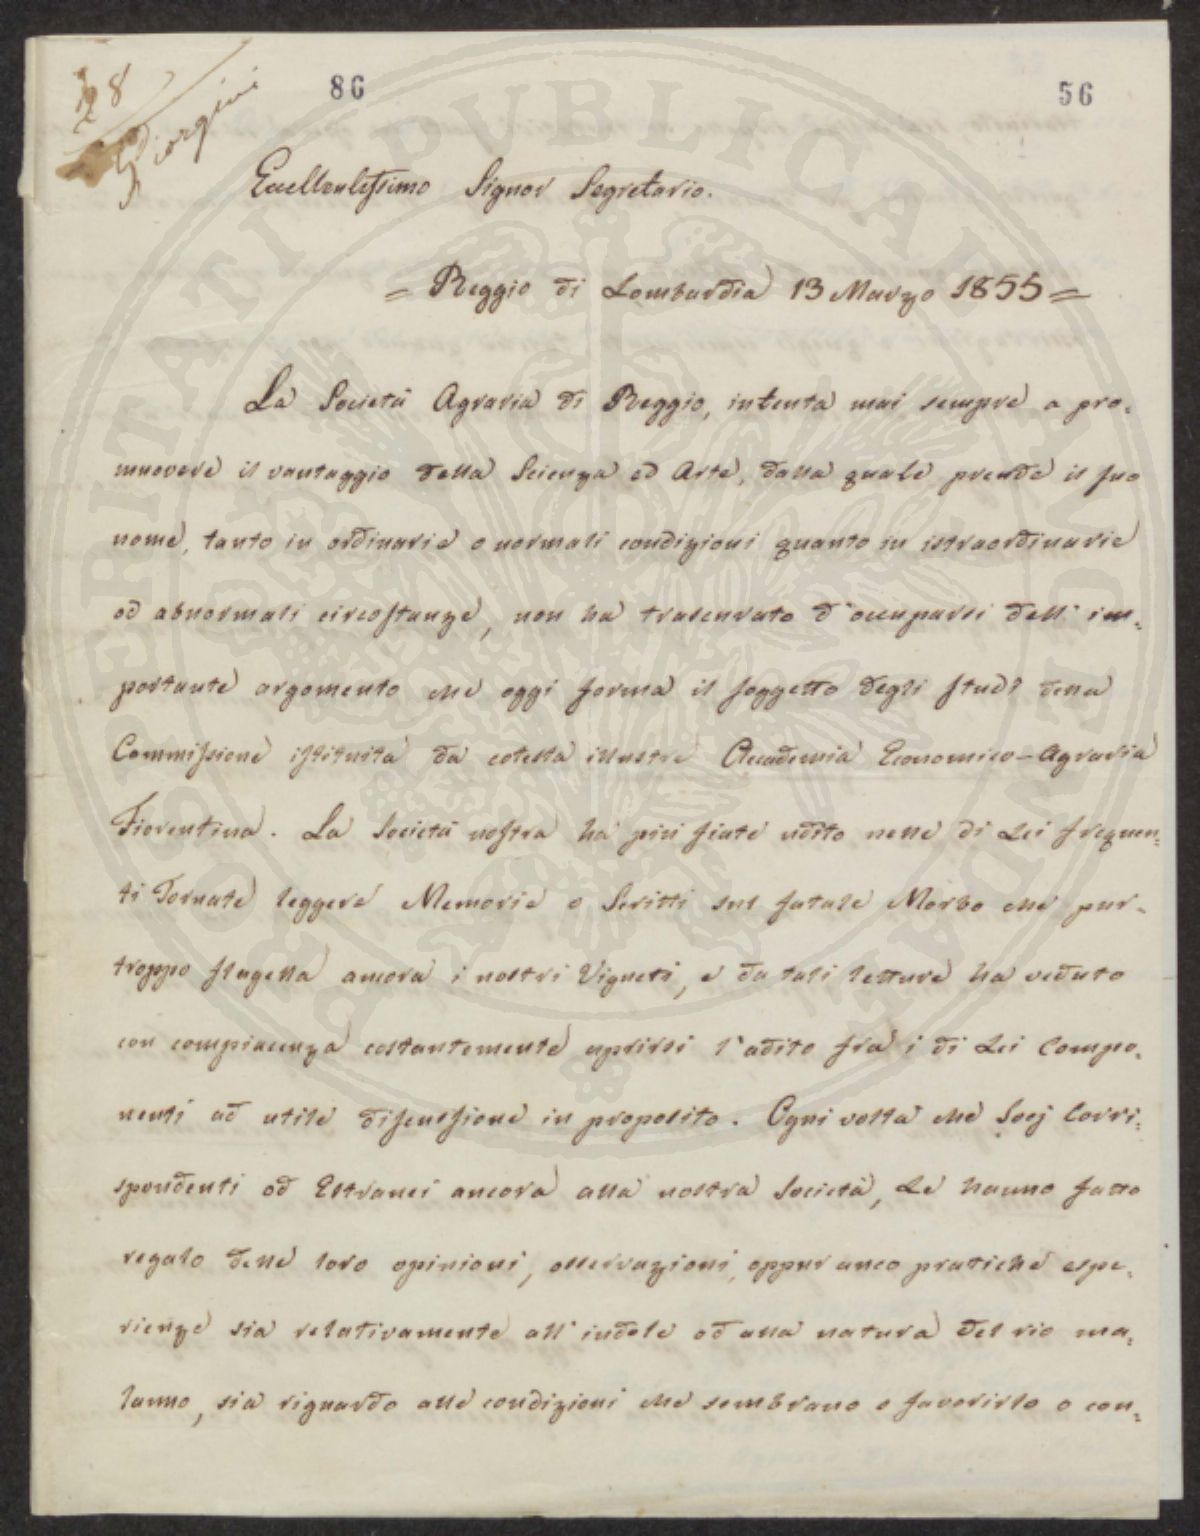 86
56
Giorgini
Eccellentissimo Signor Segretario.
= Reggio di Lombardia 13 Marzo 1855 =
La Società Agraria di Reggio, intenta mai sempre a pro=
muovere il vantaggio della Scienza ed Arte, dalla quale prende il suo
nome, tanto in ordinarie o normali condizioni quanto in istraordinarie
od abnormali circostanze, non ha trascurato d'occuparsi dell'im=
portante argomento che oggi forma il soggetto degli studî della
Commissione istituita da cotesta illustre Accademia Economico-Agraria
Fiorentina. La Società nostra ha più fiate udito nelle di Lei frequen=
ti Tornate leggere Memorie o Scritti sul fatale Morbo che pur=
troppo flagella ancora i nostri Vigneti, e da tali letture ha veduto
con compiacenza costantemente aprirsi l'adito fra i di Lei Compo=
nenti ad utile discussione in proposito. Ogni volta che Socj Corri=
spondenti od Estranei ancora alla nostra Società, Le hanno fatto
regalo delle loro opinioni, osservazioni, oppur anco pratiche espe=
rienze sia relativamente all'indole od alla natura del rio ma=
lanno, sia riguardo alle condizioni che sembrano o favorirlo o con=
PROSPERITATI PUBLICAE AUGENDAE